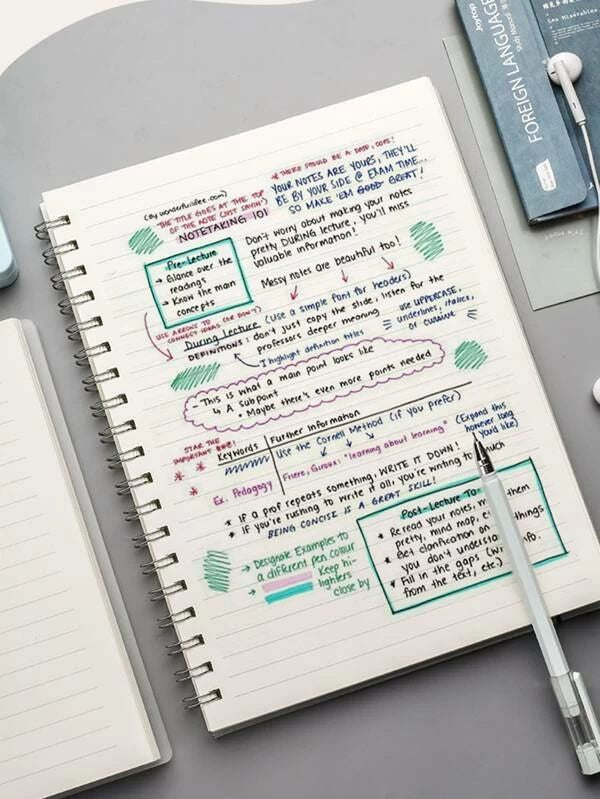 Joytop
FOREIGN LANGUAGE
Study Manual
Les Misérables
* THERE SHOULD BE A DATE, OOPS!
YOUR NOTES ARE YOURS, THEY'LL
BE BY YOUR SIDE @ EXAM TIME...
SO MAKE 'EM GOOD GREAT!
THE TITLE GOES AT THE TOP
OF THE NOTE (JUST SAYIN')
NOTETAKING 101
Don't worry about making your notes
pretty DURING lecture, you'll miss
valuable information!
Messy notes are beautiful too!
Pre-Lecture
→ Glance over the
readings
→ Know the main
concepts
USE ARROWS TO
CONNECT IDEAS (OR DON'T)
During Lecture (Use a simple font for headers)
DEFINITIONS: don't just copy the slide, listen for the
professors deeper meaning
I highlight definition titles
use UPPERCASE,
underlines, italics,
or cursive
This is what a main point looks like
↳ A subpoint
• Maybe there's even more points needed
STAR THE
IMPORTANT ONE!
Keywords
Further Information
Use the Cornell Method (if you prefer)
(Expand this
however long
you'd like)
Ex. Pedagogy
Friere, Giroux: "learning about learning"
* If a prof repeats something, WRITE IT DOWN!
* If you're rushing to write it all, you're writing too much
BEING CONCISE IS A GREAT SKILL!
→ Designate Examples to
a different pen colour
→ Keep hi-
lighters
close by
Post-Lecture To
* Reread your notes, them
pretty, mind map,
* Get clarification on things
you don't understand
* Fill in the gaps info.
from the text, etc.)